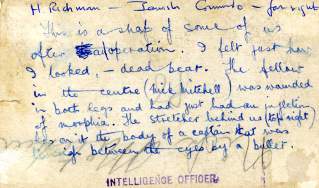 H Richman — Jewish Commdo — far right
This is a snap of some of us
after operation. I felt just how
I looked, — dead beat. The fellow
in the centre (Mick Mitchell) was wounded
in both legs and had just had an injection
of morphia. The stretcher behind us (top right)
has on it the body of a captain that was
between the eyes by a bullet.
INTELLIGENCE OFFICER